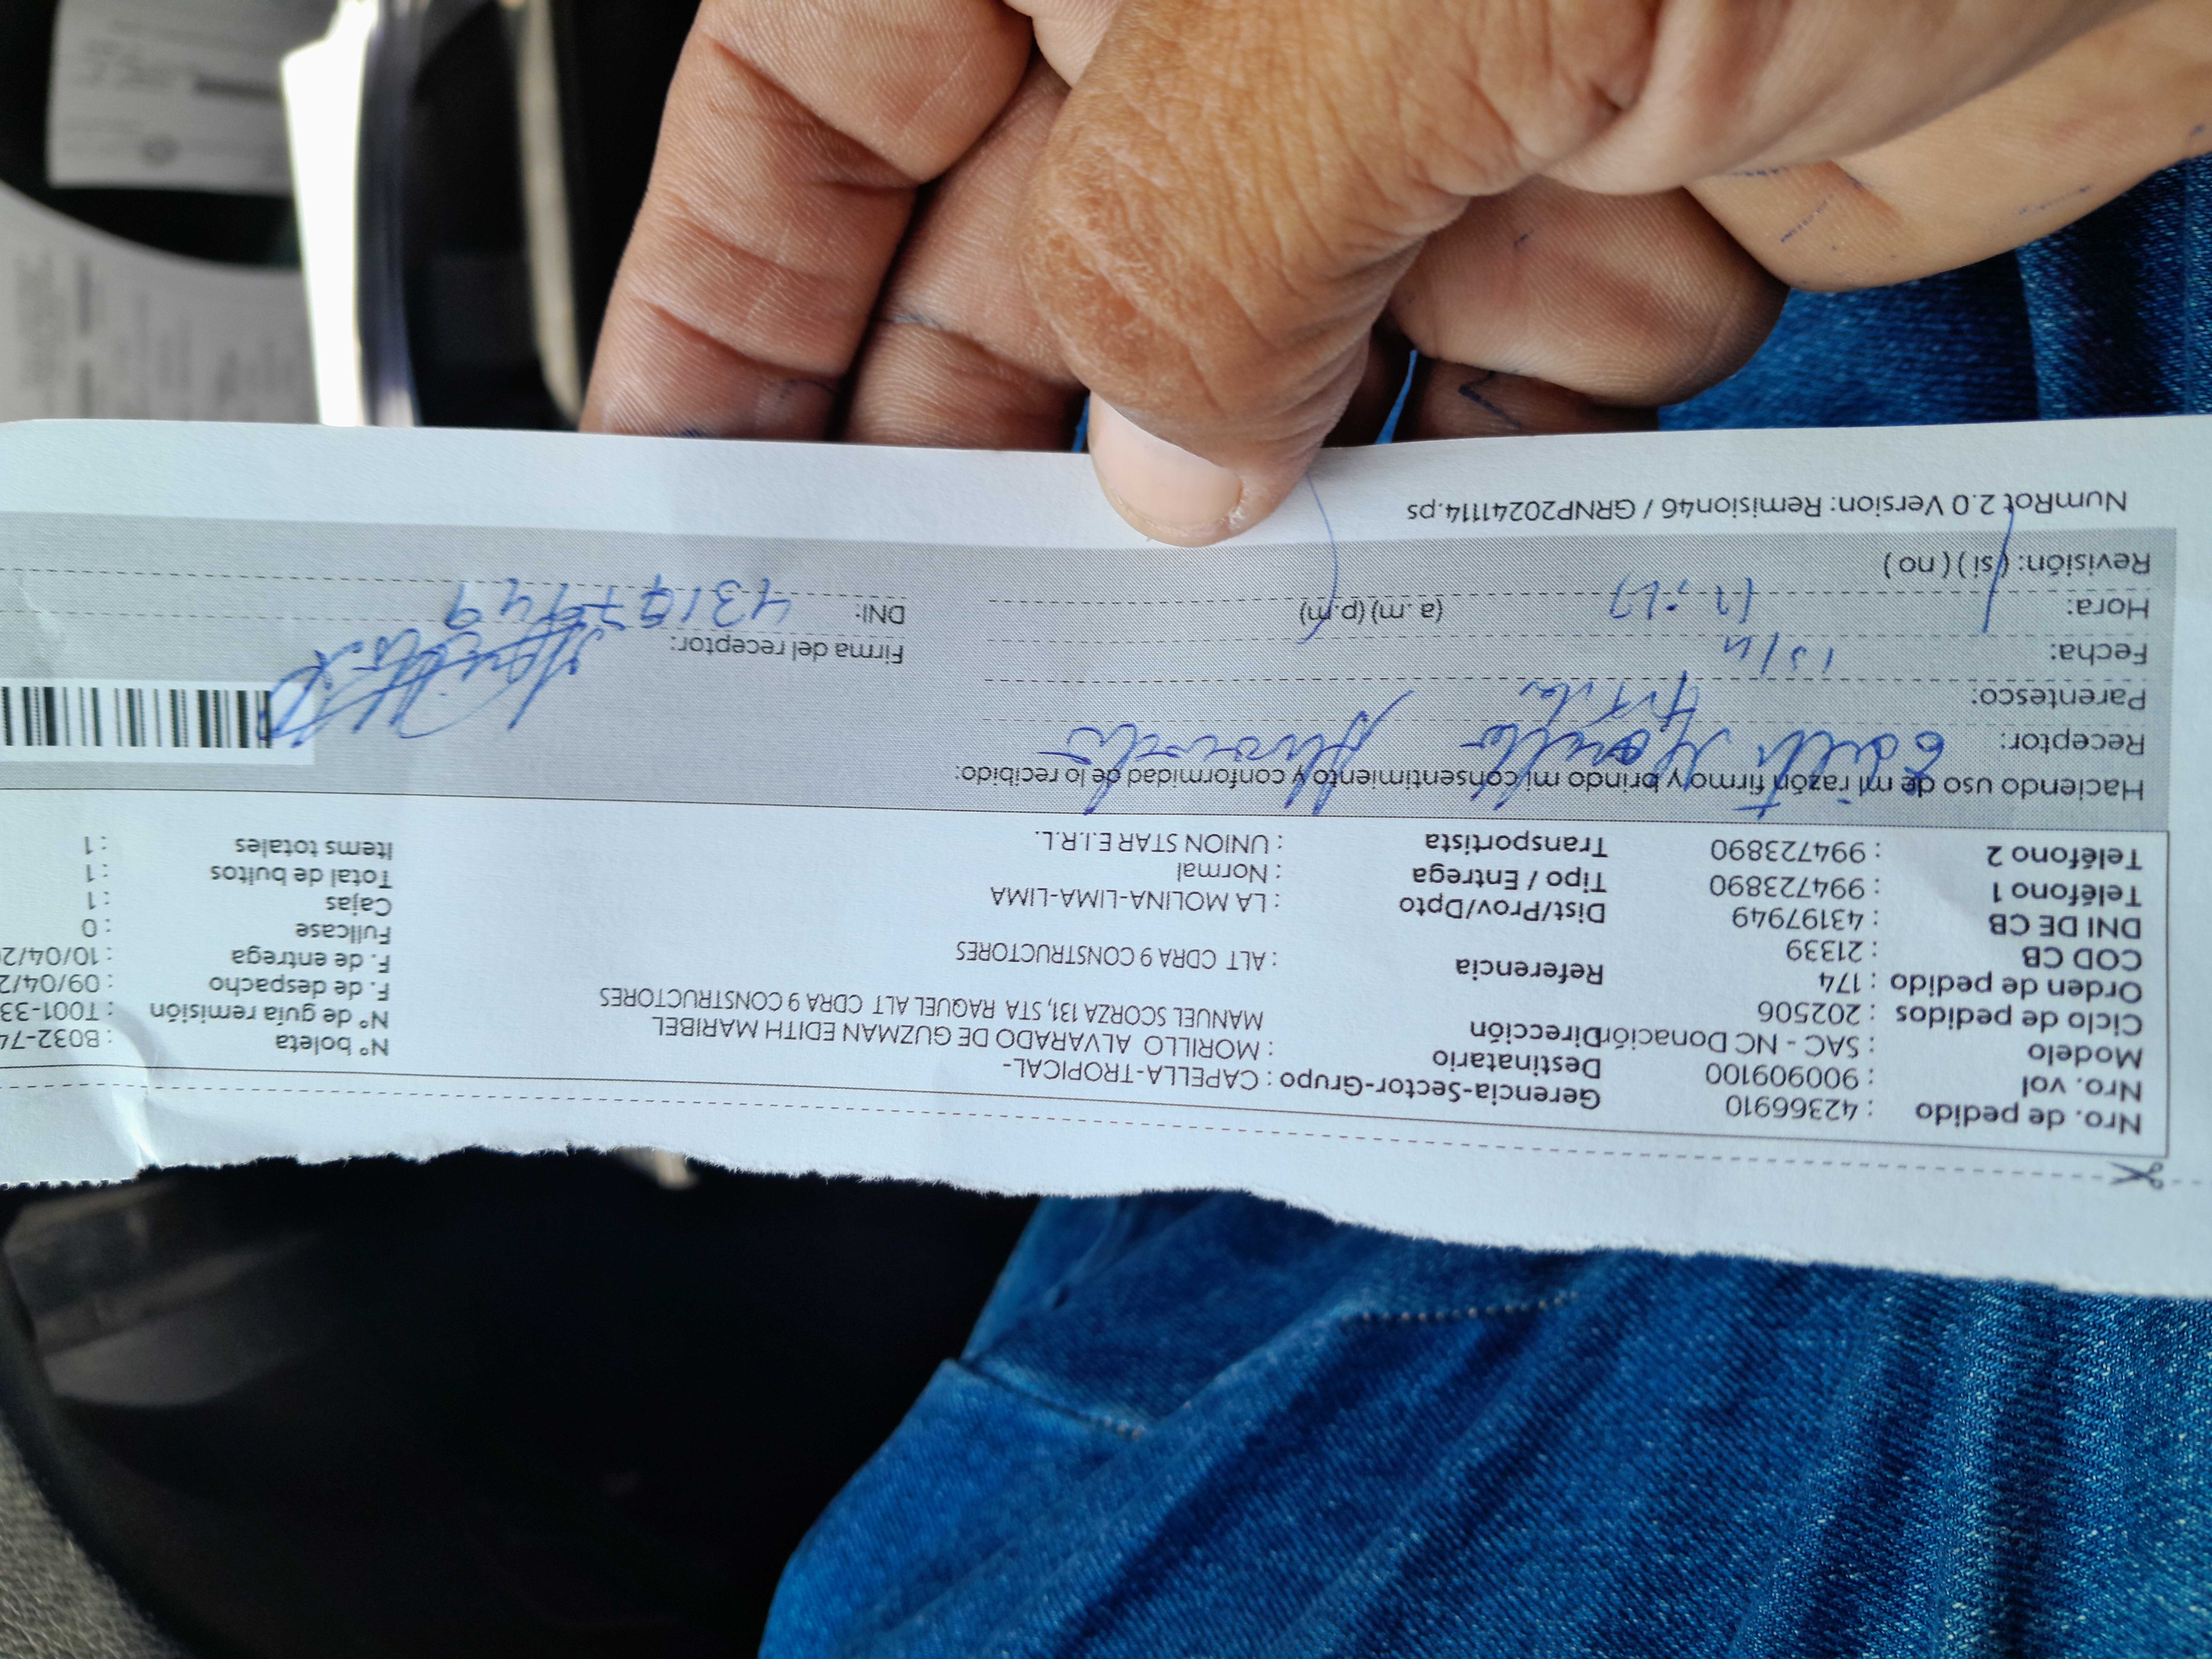 Nro. de pedido : 42366910 Gerencia-Sector-Grupo : CAPELLA-TROPICAL- Nº boleta : B032-74
Nro. vol : 900909100 Destinatario : MORILLO ALVARADO DE GUZMAN EDITH MARIBEL Nº de guía remisión : T001-33
Modelo : SAC - NC Donación Dirección MANUEL SCORZA 131, STA RAQUEL ALT CDRA 9 CONSTRUCTORES F. de despacho : 09/04/2
Ciclo de pedidos : 202506 F. de entrega : 10/04/2
Orden de pedido : 174 Referencia : ALT CDRA 9 CONSTRUCTORES Fullcase : 0
COD CB : 21339 Cajas : 1
DNI DE CB : 43197949 Dist/Prov/Dpto : LA MOLINA-LIMA-LIMA Total de bultos : 1
Teléfono 1 : 994723890 Tipo / Entrega : Normal Items totales : 1
Teléfono 2 : 994723890 Transportista : UNION STAR E.I.R.L.
Haciendo uso de mi razón firmo y brindo mi consentimiento y conformidad de lo recibido:
Receptor: Edith Morillo Alvarado
Parentesco:
Fecha: Firma del receptor:
Hora: (a.m) (p.m) DNI: 43197949
Revisión: (si) (no)
NumRot 2.0 Version: Remision46 / GRNP20241114.ps